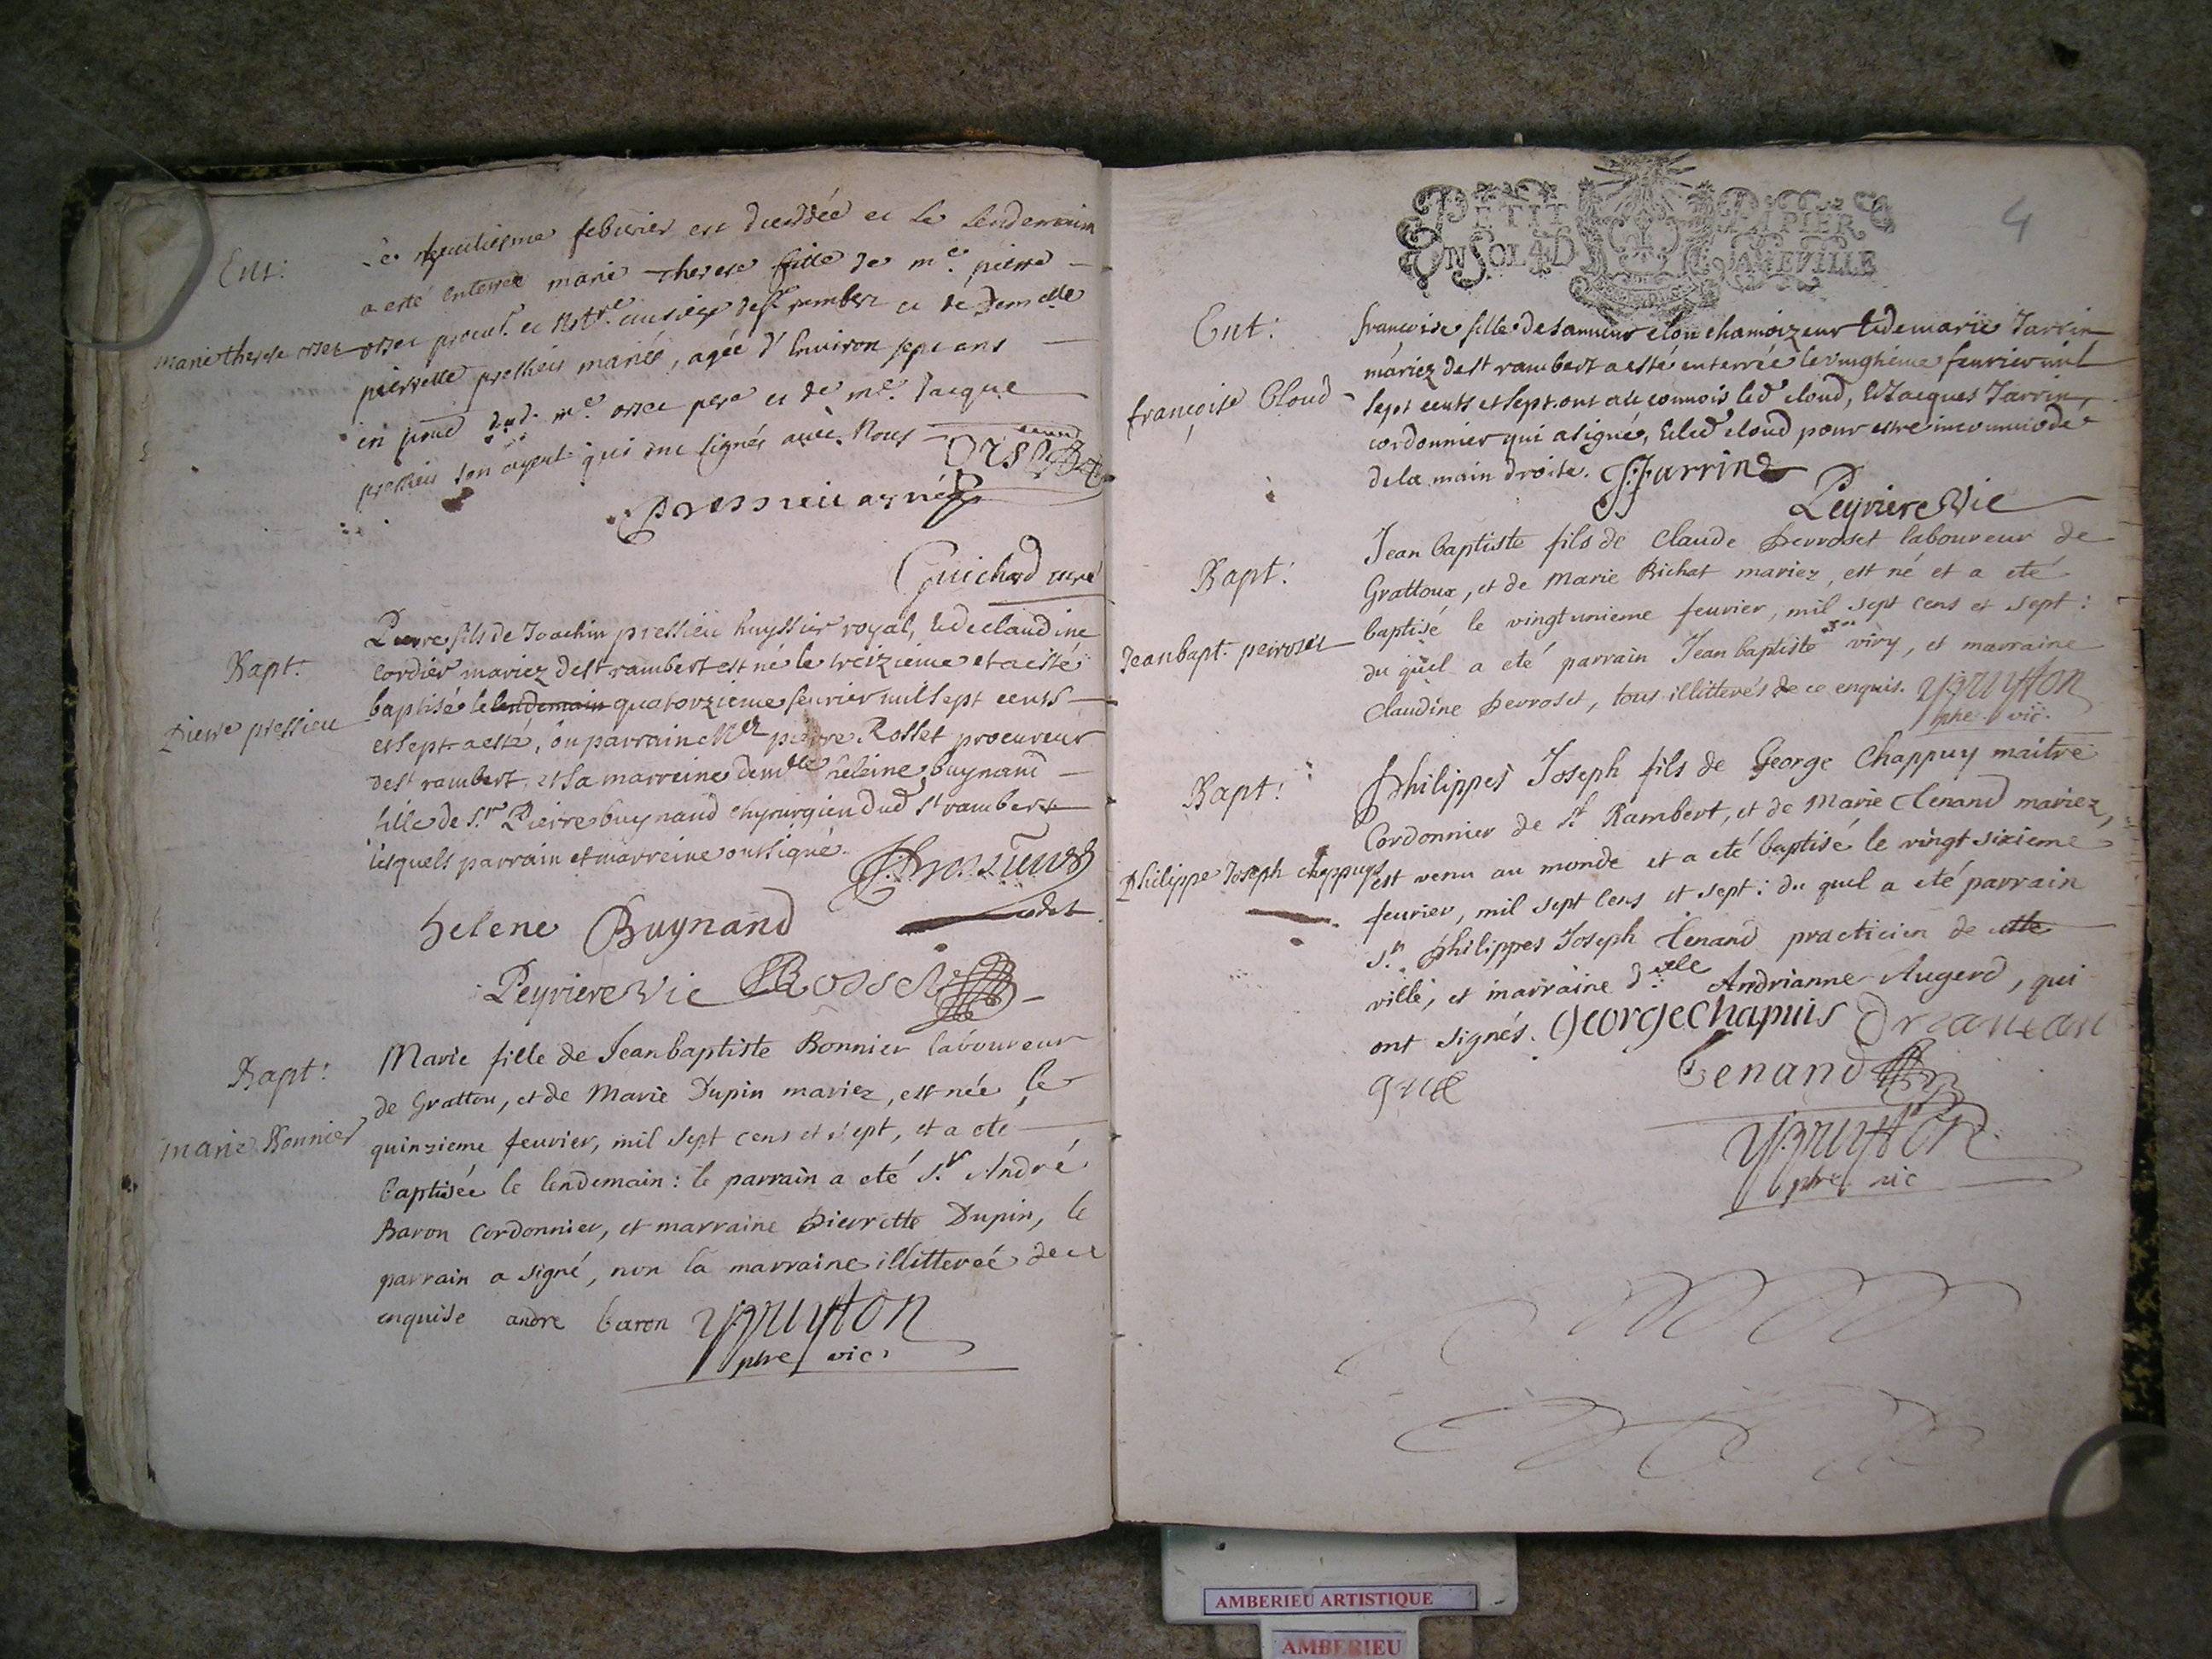 Ent:
febvrier est decedée et le lendemain
a esté enterrée marie Therese fille de me. pierre
marie therese orset
orset procur. et au siege de st rambert et de Demelle
pierrette pressieu mariés, agée d'Environ sept ans
en dud. me. orset pere et de me. Jacque
pressieu son qui ont signés avec Nous
orset
pressieu
Guichard curé
Bapt.
pierre pressieu
Pierre fils de Joachin pressieu huyssier royal, et de claudine
cordier mariez de st rambert est né le treizieme et a esté
baptisé le lendemain quatorzieme feurier mil sept cents
et sept a esté, son parrain Me pierre Rosset procureur
de st rambert, et la marreine demlle heleine buynand
fille de Sr. Pierre buynand chyrurgien dud st rambert
lesquels parrain et marreine ont signé.
helene Buynand
Peyriere Vic Rosset
Bapt:
marie Bonnier
Marie fille de Jean baptiste Bonnier laboureur
de Grattou, et de Marie Dupin mariez, est née le
quinzieme feurier, mil sept cens et sept, et a eté
baptisée le lendemain: le parrain a eté Sr. André
Baron Cordonnier, et marraine Pierrette Dupin, le
parrain a signé, non la marraine illitterée de ce
enquise andre baron
pbre vic.
4
PETIT PAPIER
UN SOL 4 D LA FEVILLE
Ent:
françoise Cloud
françoise fille de clou chamoizeur et de marie Jarrin
mariez de st rambert a esté enterrée le vingtieme feurier mil
sept cents et sept. ont ale connois led cloud, et Jacques Jarrin,
cordonnier qui a signé, et led cloud pour estre incommodé
de la main droite. J Jarrin
Peyriere Vic
Bapt:
Jean bapt. perroset
Jean baptiste fils de Claude Perroset laboureur de
Grattoux, et de Marie Bichat mariez, est né et a eté
baptisé le vingt unieme feurier, mil sept cens et sept:
du quel a eté parrain Jean baptiste viry, et marraine
Claudine Perroset, tous illitterés de ce enquis.
pbre vic.
Bapt:
Philippe Joseph chappuys
Philippes Joseph fils de George Chappuy maitre
Cordonnier de St Rambert, et de Marie Tenand mariez,
est venu au monde et a eté baptisé le vingt sixieme
feurier, mil sept cens et sept: du quel a eté parrain
Sr. Philippes Joseph Tenand practicien de cette
ville, et marraine dlle Andrianne Augerd, qui
ont signés. George Chapuis
Tenand
pbre vic
AMBERIEU ARTISTIQUE
AMBERIEU